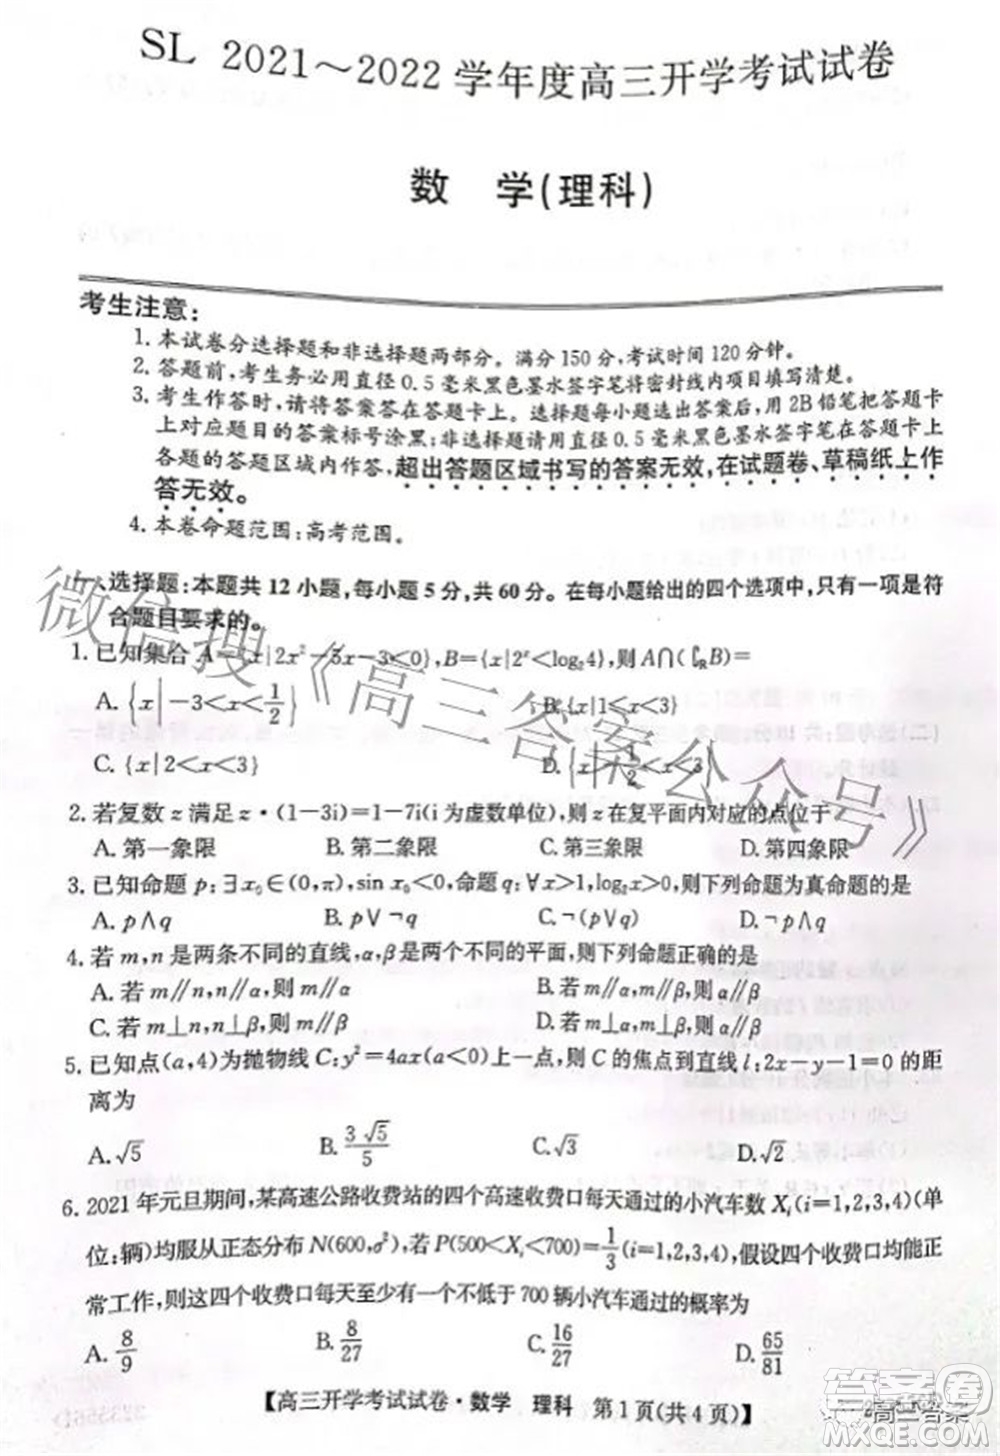 SL 2021～2022学年度高三开学考试试卷
数 学(理科)
考生注意:
1. 本试卷分选择题和非选择题两部分。满分150分,考试时间120分钟。
2. 答题前,考生务必用直径0.5毫米黑色墨水签字笔将密封线内项目填写清楚。
3. 考生作答时,请将答案答在答题卡上。选择题每小题选出答案后,用2B铅笔把答题卡
上对应题目的答案标号涂黑;非选择题请用直径0.5毫米黑色墨水签字笔在答题卡上
各题的答题区域内作答,超出答题区域书写的答案无效,在试题卷、草稿纸上作
答无效。
4. 本卷命题范围:高考范围。
一、选择题:本题共12小题,每小题5分,共60分。在每小题给出的四个选项中,只有一项是符
合题目要求的。
1. 已知集合A={x|2x²-5x-3<0},B={x|2ˣ<log₂4},则A∩(∁ʀB)=
A. {x|-3<x<1/2} B. {x|1≤x<3}
C. {x|2<x<3} D. {x|1/2<x<3}
2. 若复数z满足z·(1-3i)=1-7i(i为虚数单位),则z在复平面内对应的点位于
A. 第一象限 B. 第二象限 C. 第三象限 D. 第四象限
3. 已知命题p:∃x₀∈(0,π),sin x₀<0,命题q:∀x>1,log₂x>0,则下列命题为真命题的是
A. p∧q B. p∨¬q C. ¬(p∨q) D. ¬p∧q
4. 若m,n是两条不同的直线,α,β是两个不同的平面,则下列命题正确的是
A. 若m∥n,n∥α,则m∥α B. 若m∥α,α∥β,则m∥β
C. 若m⊥n,n⊥β,则m∥β D. 若m⊥α,α∥β,则m⊥β
5. 已知点(a,4)为抛物线C:y²=4ax(a<0)上一点,则C的焦点到直线l:2x-y-1=0的距
离为
A. √5 B. 3√5/5 C. √3 D. √2
6. 2021年元旦期间,某高速公路收费站的四个高速收费口每天通过的小汽车数Xᵢ(i=1,2,3,4)(单
位:辆)均服从正态分布N(600,σ²),若P(500<Xᵢ<700)=1/3(i=1,2,3,4),假设四个收费口均能正
常工作,则这四个收费口每天至少有一个不低于700辆小汽车通过的概率为
A. 8/9 B. 8/27 C. 16/27 D. 65/81
【高三开学考试试卷·数学 理科 第1页(共4页)】
微信搜《高三答案公众号》